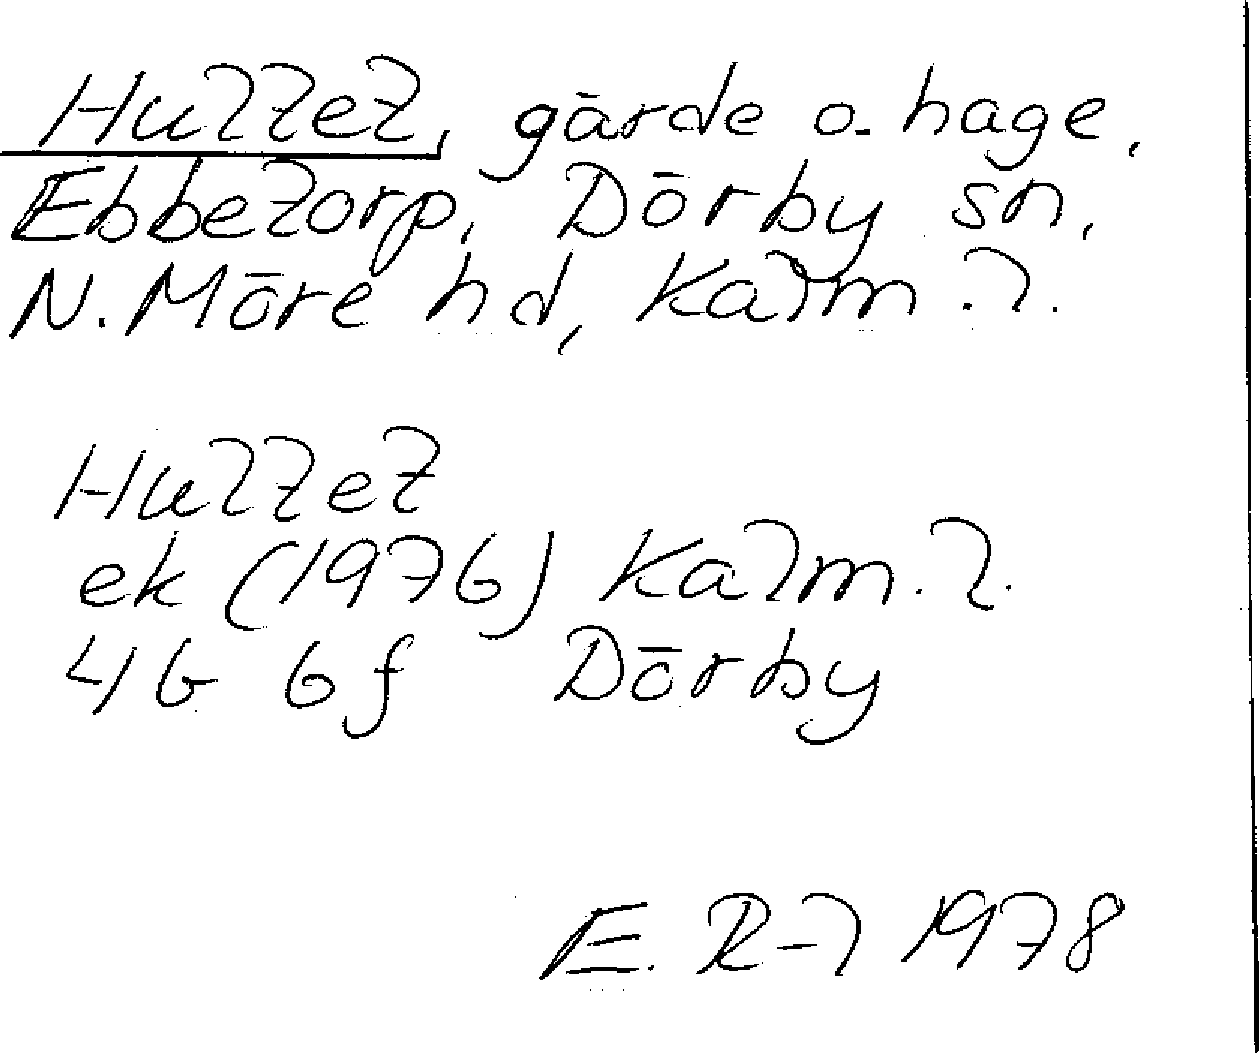 Hultet, gärde o. hage,
Ebbetorp, Dörby sn,
N. Möre hd, Kalm. l.
Hultet
ek (1976) Kalm. l.
4G 6f Dörby
E. R-l 1978